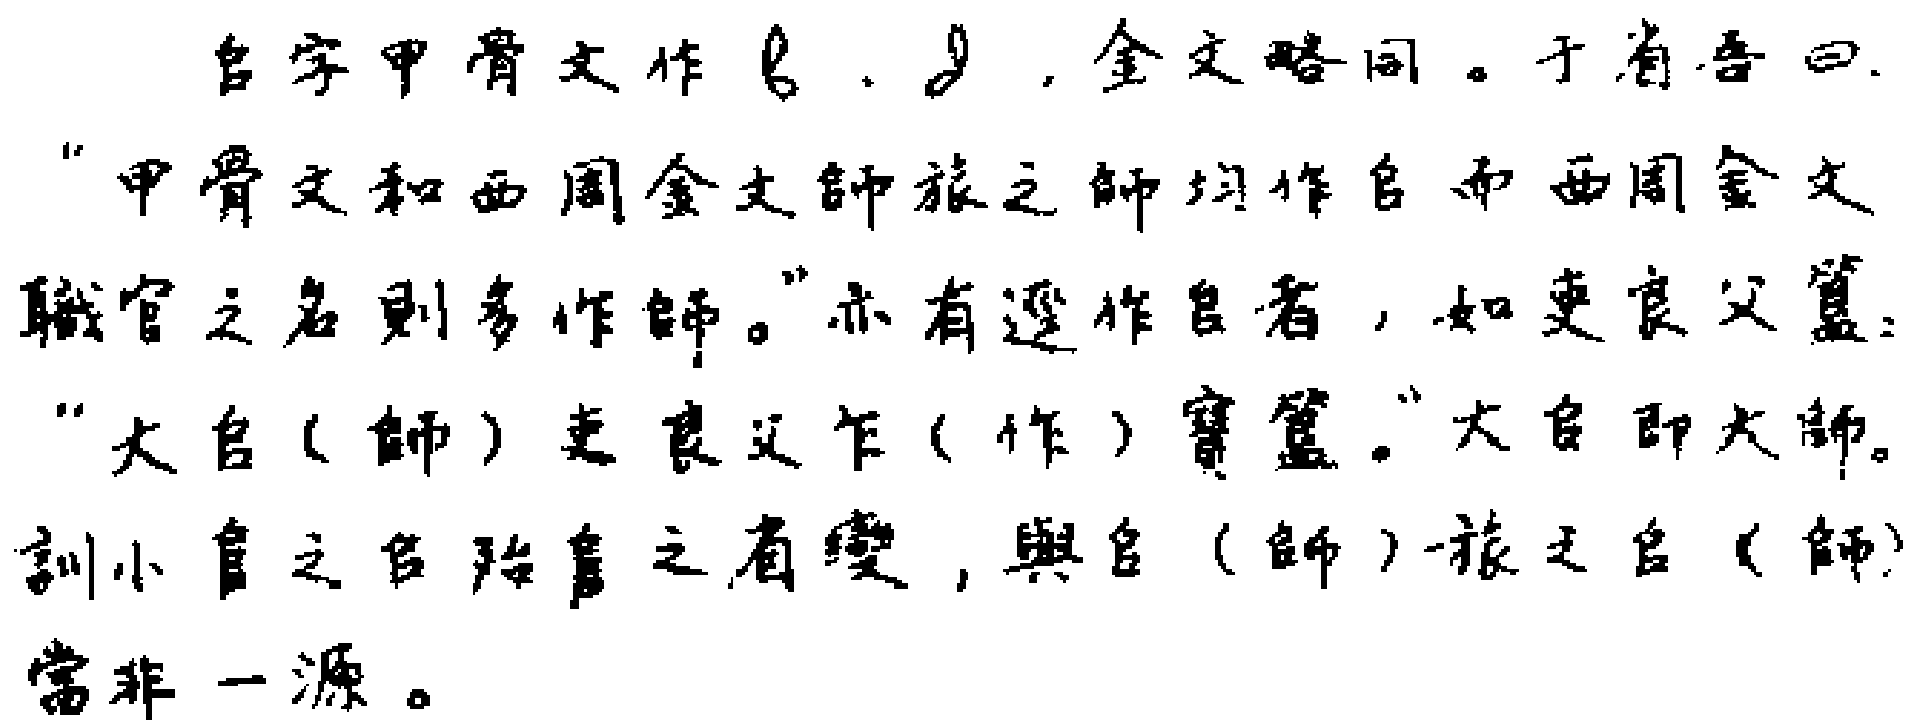 𠂤字甲骨文作 、 ，金文略同。于省吾曰：
“甲骨文和西周金文師旅之師均作𠂤而西周金文
職官之名則多作師。”亦有逕作𠂤者，如吏良父簋：
“大𠂤（師）吏良父乍（作）寶簋。”大𠂤即大師。
訓小𨸏之𠂤殆𨸏之省變，與𠂤（師）旅之𠂤（師）
當非一源。